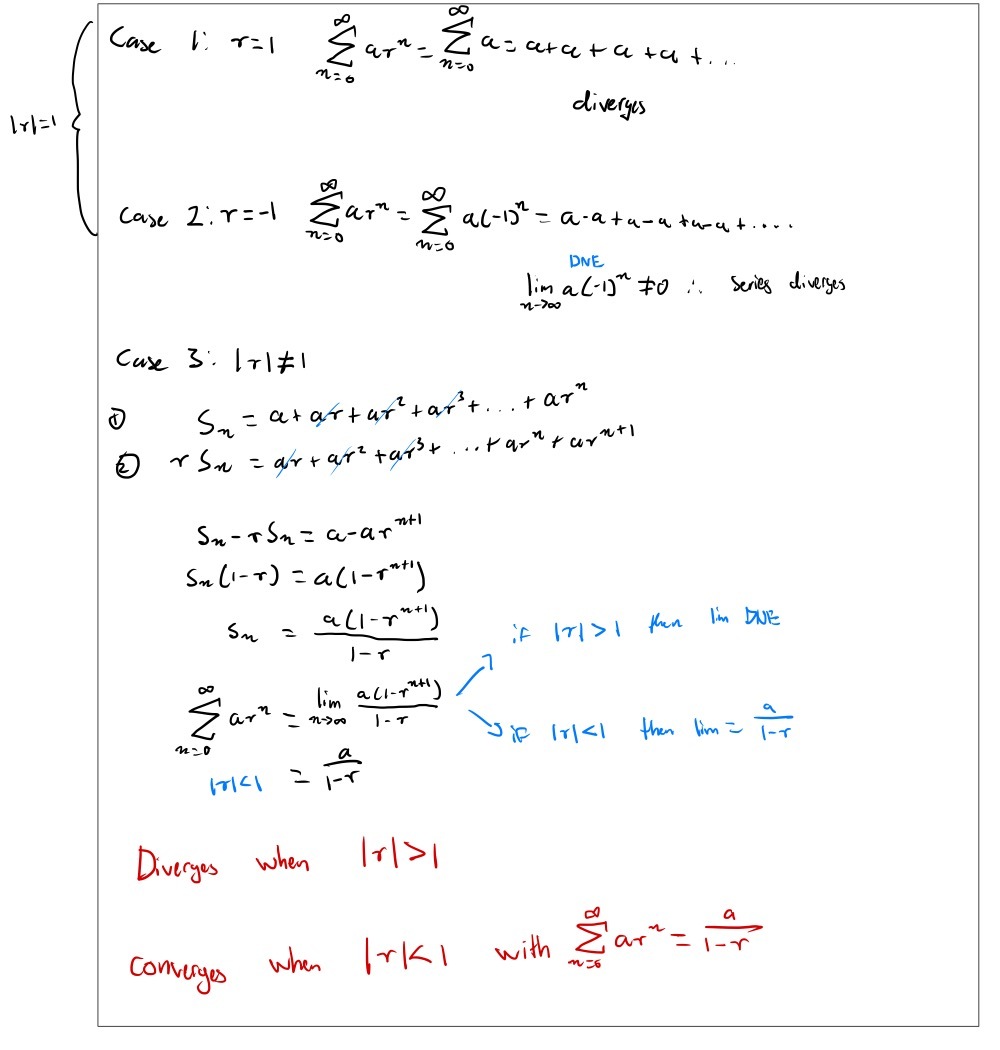 |r|=1
Case 1: r=1 ∑_{n=0}^{∞} ar^n = ∑_{n=0}^{∞} a = a+a+a+a+...
diverges
Case 2: r=-1 ∑_{n=0}^{∞} ar^n = ∑_{n=0}^{∞} a(-1)^n = a-a+a-a+a-a+....
DNE
lim_{n→∞} a(-1)^n ≠0 ∴ series diverges
Case 3: |r|≠1
① S_n = a+ar+ar^2+ar^3+...+ar^n
② rS_n = ar+ar^2+ar^3+...+ar^n+ar^{n+1}
S_n-rS_n = a-ar^{n+1}
S_n(1-r) = a(1-r^{n+1})
S_n = \frac{a(1-r^{n+1})}{1-r}
if |r|>1 then lim DNE
∑_{n=0}^{∞} ar^n = lim_{n→∞} \frac{a(1-r^{n+1})}{1-r}
if |r|<1 then lim = \frac{a}{1-r}
|r|<1 = \frac{a}{1-r}
Diverges when |r|>1
Converges when |r|<1 with ∑_{n=0}^{∞} ar^n = \frac{a}{1-r}